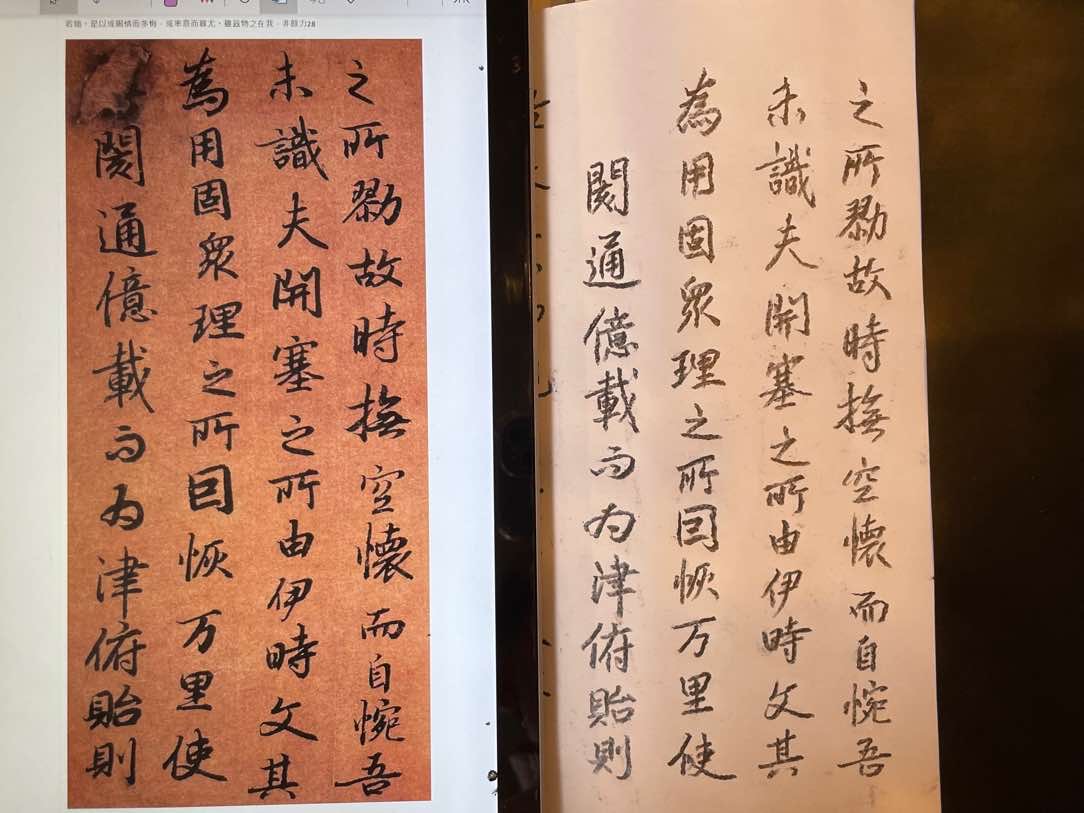 是以或竭情而多悔，或率意而寡尤，雖茲物之在我，非餘力28
之所勠故時撫空懷而自惋吾
未識夫開塞之所由伊時文其
為用固衆理之所因恢万里使
閡通億載而为津俯貽則
之所勠故時撫空懷而自惋吾
未識夫開塞之所由伊時文其
為用固衆理之所因恢万里使
閡通億載而为津俯貽則